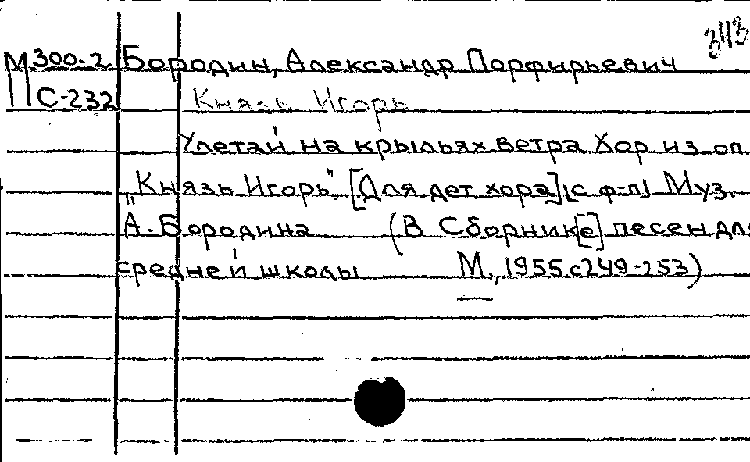 343
М300-2 Бородин, Александр Порфирьевич
С-232 Князь Игорь
Улетай на крыльях ветра Хор из оп.
„Князь Игорь". [Для дет хора] (с ф-п) Муз.
А. Бородина (В Сборник[е] песен для
средней школы М., 1955 с 249-253)